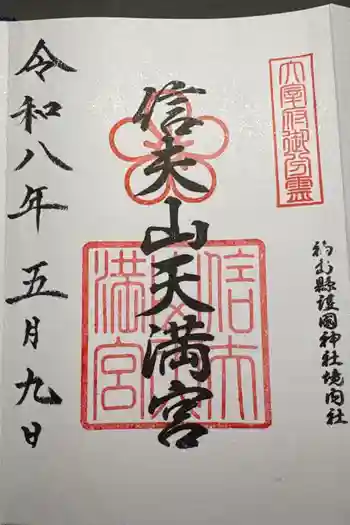 太宰府御分霊
福島縣護國神社境内社
信夫山天満宮
信夫山天満宮
令和八年五月九日